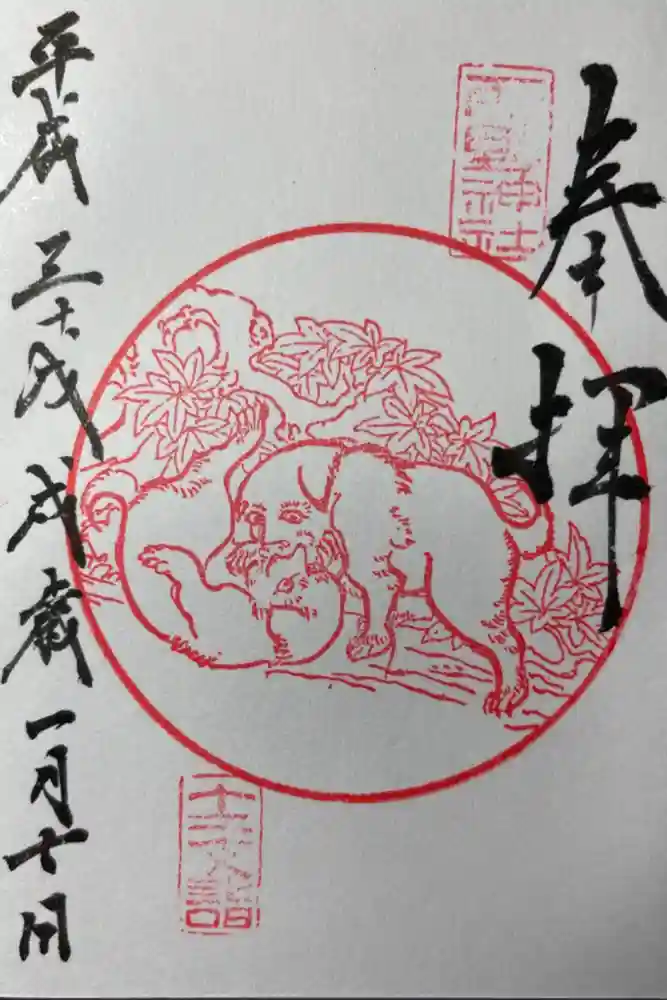 奉拝
平成三十戊戌歳一月十日